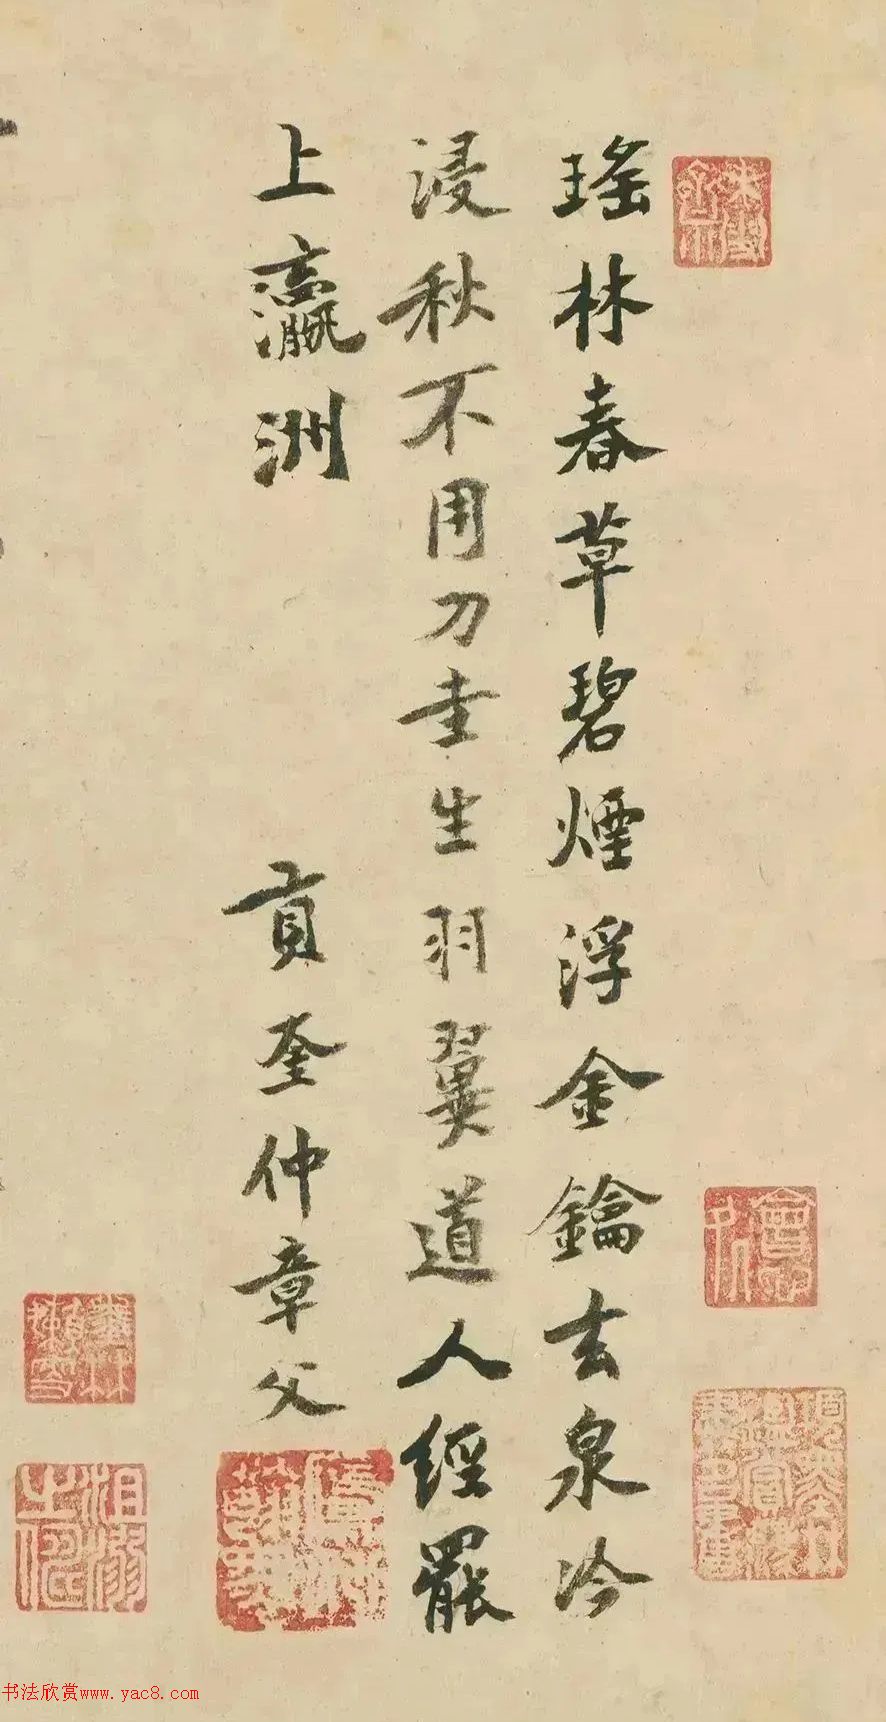 瑤林春草碧煙浮金鑰玄泉冷
浸秋不用刀圭生羽翼道人經罷
上瀛洲
貢奎仲章父
书法欣赏www.yac8.com